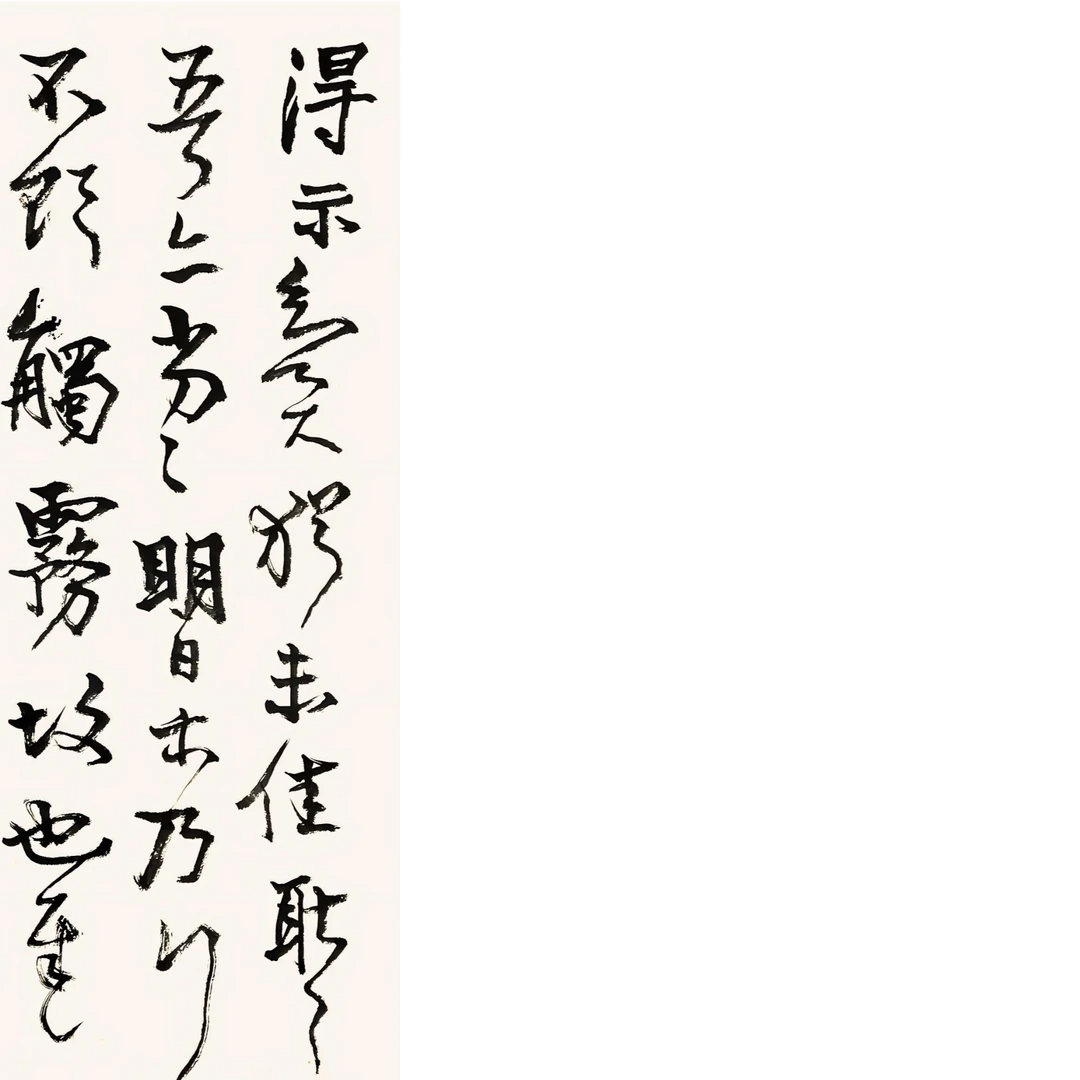 得示知足下猶未佳耿耿
吾亦劣劣明日出乃行
不欲觸霧故也遲